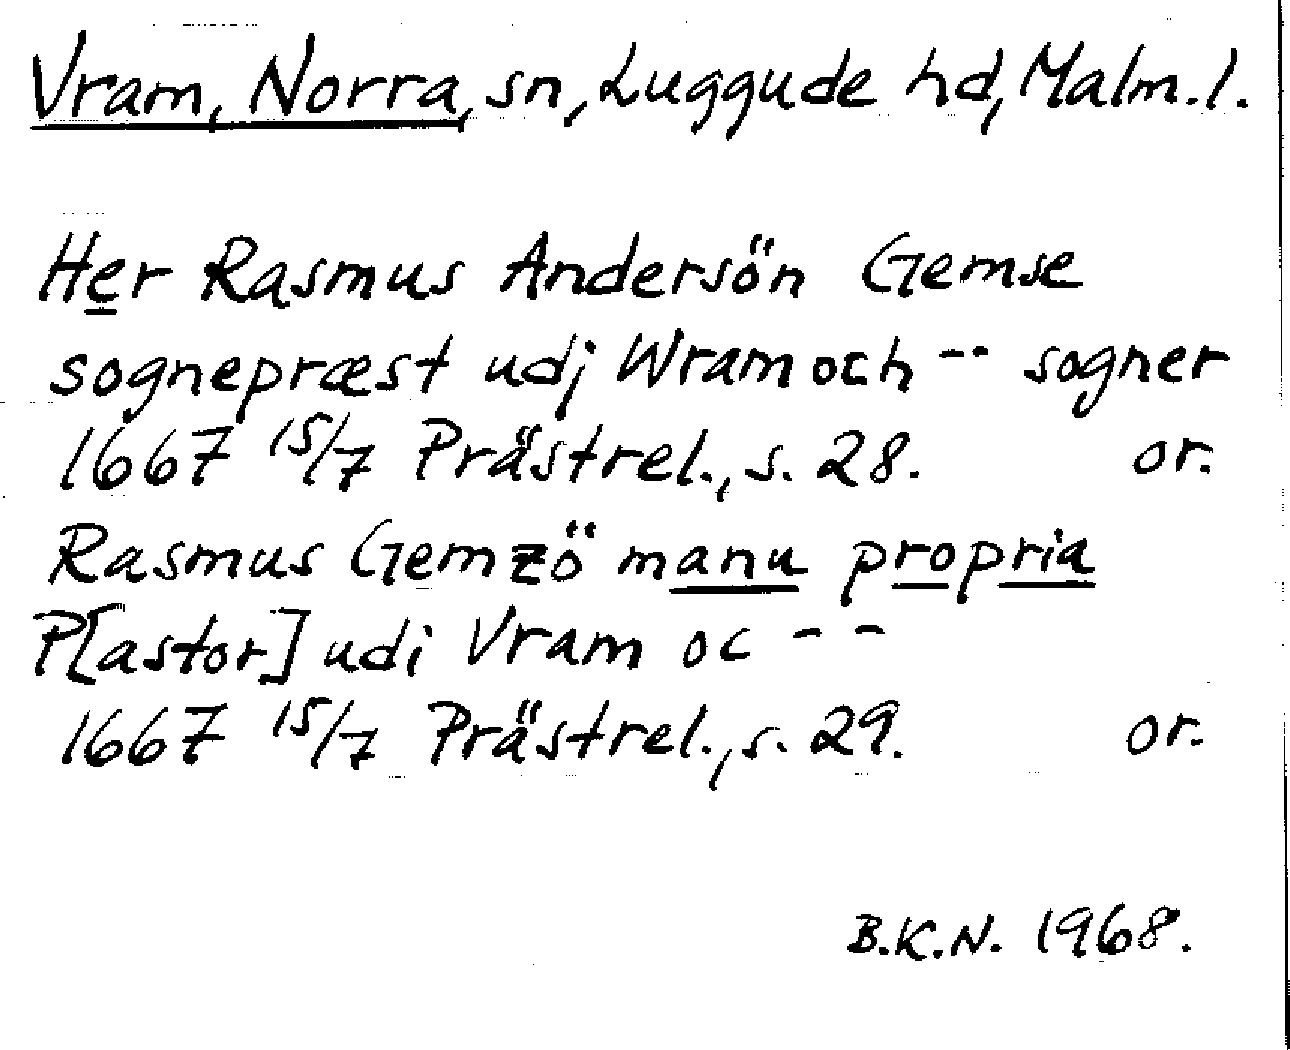 Vram, Norra, sn, Luggude hd, Malm. l.
Her Rasmus Andersön Gemse
sognepræst udj Wram och -- sogner
1667 15/7 Prästrel., s. 28. or.
Rasmus Gemzö manu propria
P[astor] udi Vram oc --
1667 15/7 Prästrel., s. 29. or.
B.K.N. 1968.